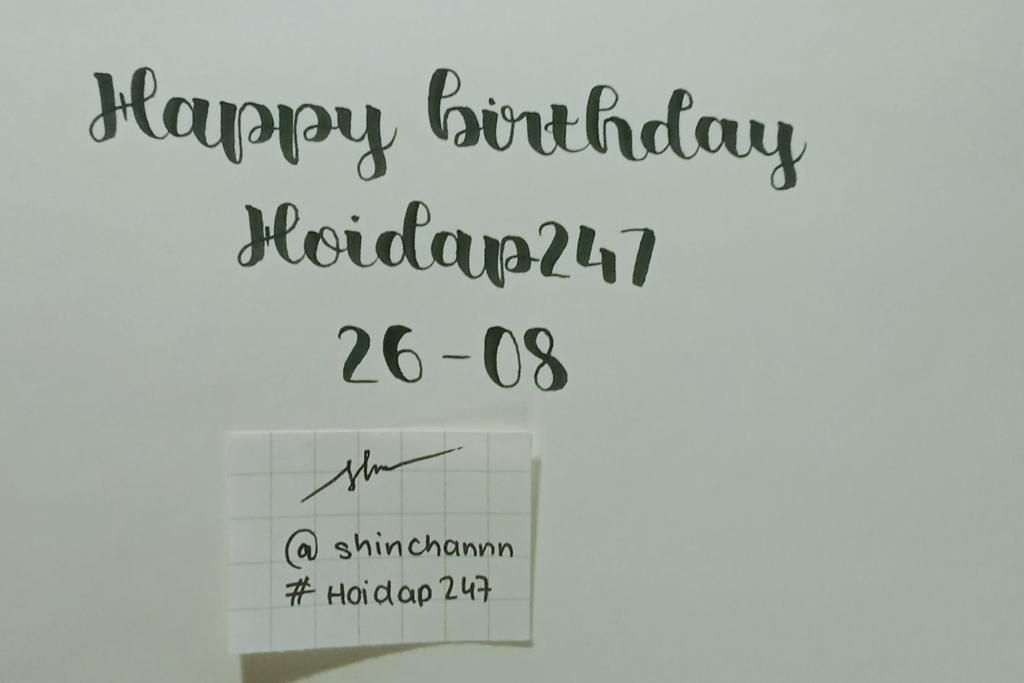 Happy birthday
Hoidap247
26-08
@ shinchannn
# Hoidap 247